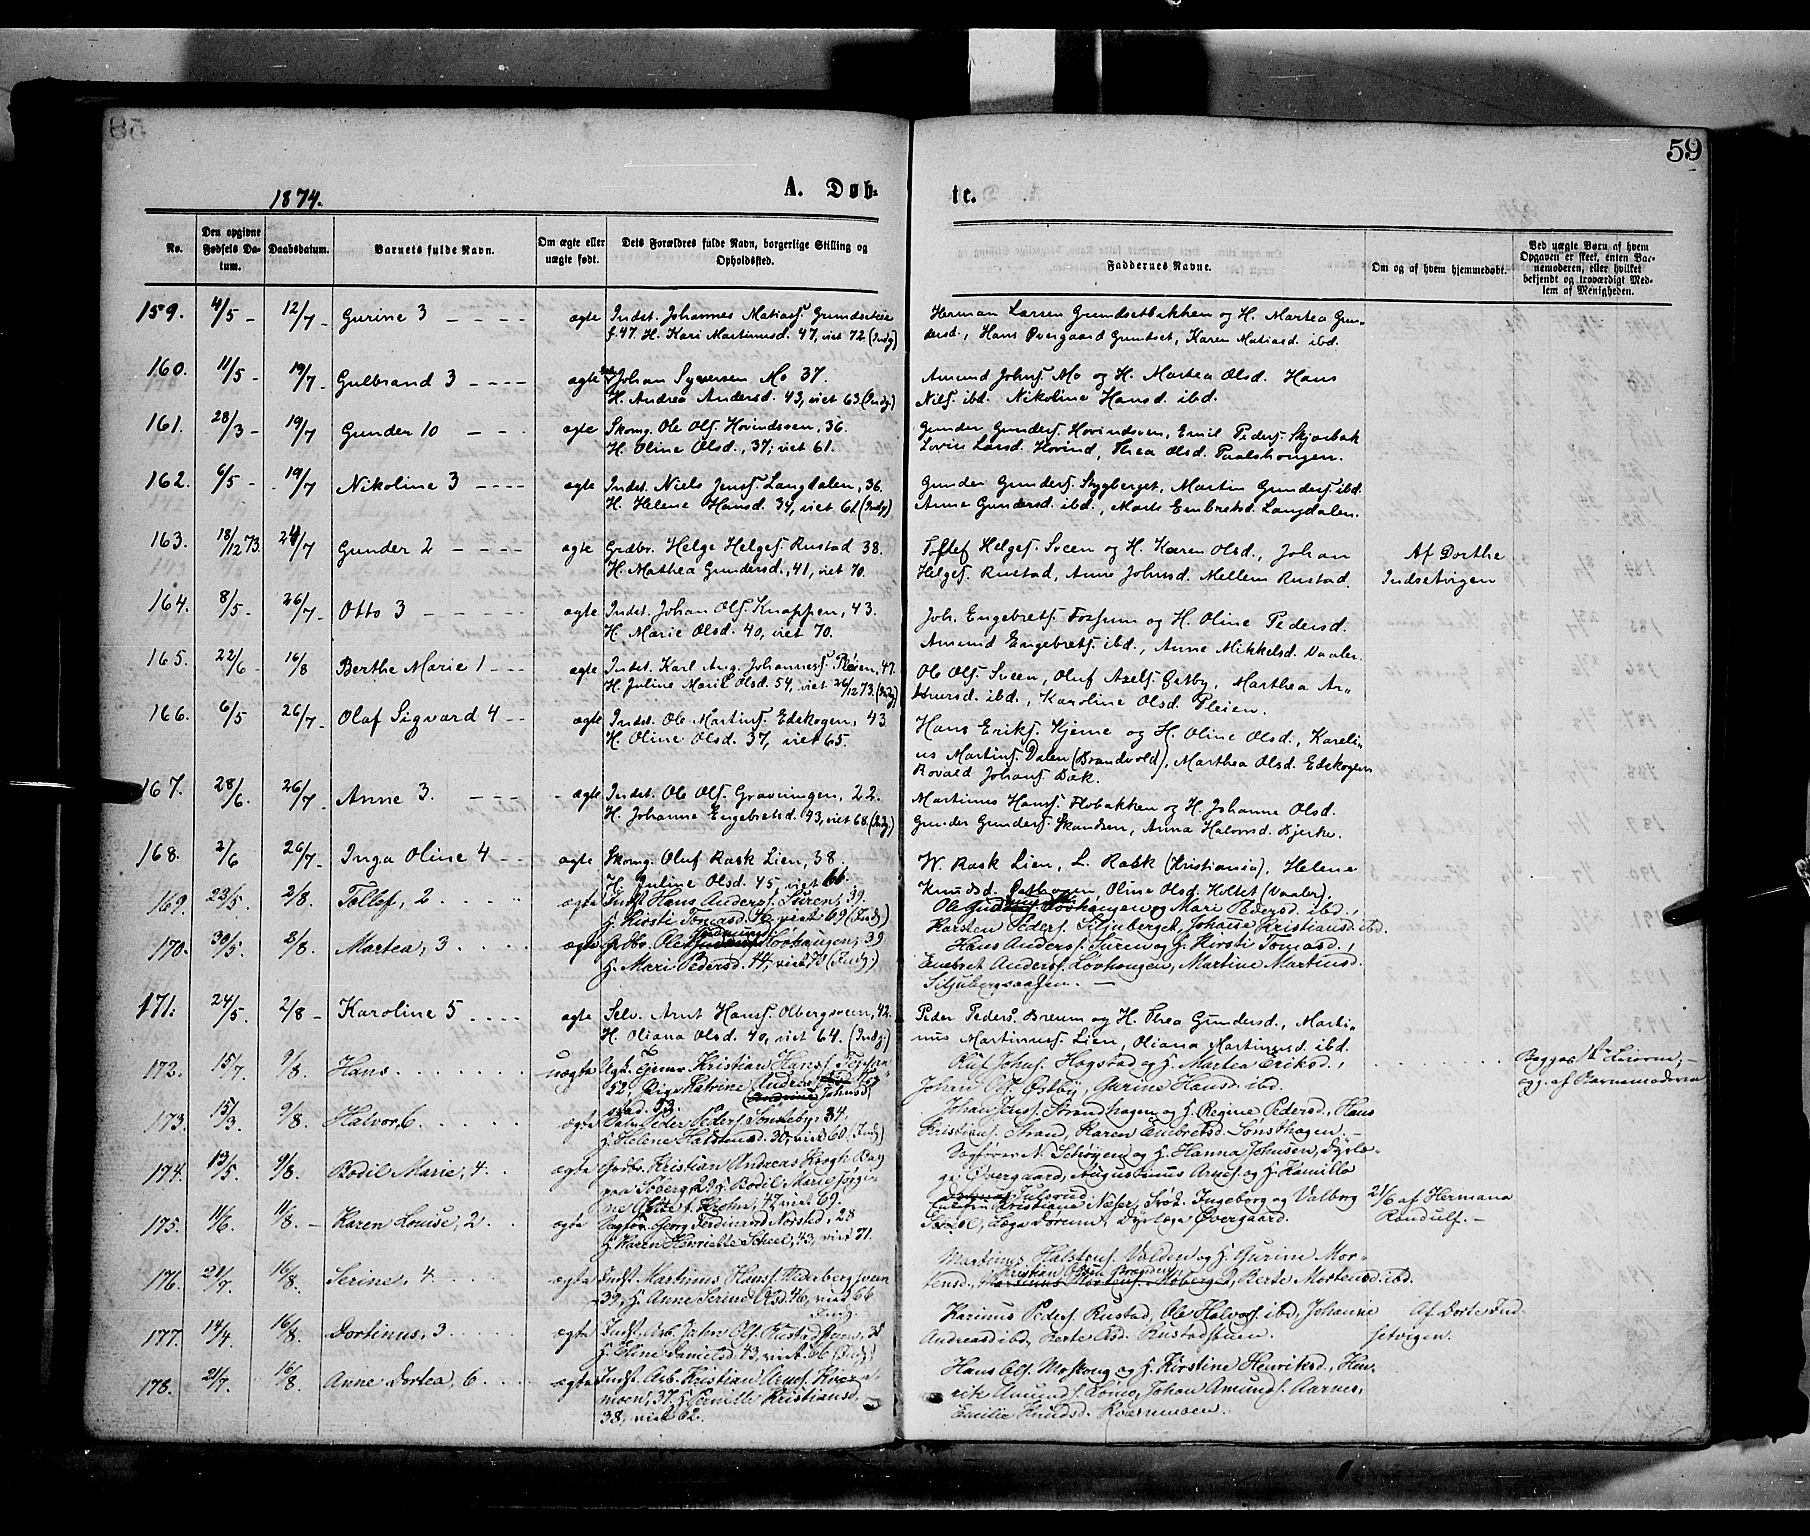 59
1874.
A. Døb-
te.
No.
Den opgivne Fødsels Datum.
Daabsdatum.
Barnets fulde Navn.
Om ægte eller uægte født.
Dets Forældres fulde Navn, borgerlige Stilling og Opholdssted.
Faddernes Navne.
Om og af hvem hjemmedøbt.
Ved uægte Børn af hvem Opgaven er skeet, enten Barnemoderen, eller hvilket bekjendt og troværdigt Medlem af Menigheden.
159. 4/5 - 12/7 - Gurine 3 - - - - ægte Indst. Johannes Matiass. Grundseteie
f. 47. H. Kari Martinusd. 47, viet 72. (Indg)
Herman Larsen Grundsetbakken og H. Martea Gun-
dersd., Hans Øvergaard Grundset, Karen Matiasd. ibd.
160. 11/5 - 19/7 - Gulbrand 3 - - - - ægte Johan Syversen Mo 37.
H. Andrea Andersd. 43, viet 63 (Indg)
Amund Johns. Mo og H. Martea Olsd. Hans
Nils. ibd. Nikoline Hansd. ibd.
161. 28/3 - 19/7 Gunder 10 - - - ægte Skomg. Ole Ols. Hovindsven, 36.
H. Oline Olsd., 37, viet 61.
Gunder Gunders. Hovindsven, Emil Peders. Skjærbak
Lovise Larsd. Hovind, Thea Olsd. Paalshougen.
162. 6/5 - 19/7 Nikoline 3 - - - - ægte Indst. Niels Jenss. Langdalen, 36.
H. Helene Hansd. 34, viet 61. (Indg)
Gunder Gunders. Skygberget, Martin Gunders. ibd.
Anne Gundersd. ibd., Marte Embretsd. Langdalen.
163. 18/12 73. 24/7 Gunder 2 - - - - ægte Grdbr. Helge Helges. Rustad 38.
H. Mathea Gundersd., 41, viet 70.
Toftef Helges. Sveen og H. Karen Olsd., Johan
Helges. Rustad, Anne Johnsd. Mellem Rustad.
Af Dorthe
Indsetvigen
164. 8/5 - 26/7 - Otto 3 - - - - - ægte Indst. Johan Ols. Knappen, 43.
H. Marie Olsd. 40, viet 70.
Joh. Engebrets. Fossum og H. Oline Pedersd.
Amund Engebrets. ibd., Anne Mikkelsd. Vaaler.
165. 22/6 - 16/8 Berthe Marie 1 - - - ægte Indst. Karl Aug. Johanness. Pleien, 47.
H. Juline Marie Olsd. 54, viet 26/12 73. (Indg)
Ole Ols. Sveen, Oluf Axels. Østby, Marthea An-
dersd. ibd., Karoline Olsd. Pleien.
166. 6/5 - 26/7 - Olaf Sigvard 4 - - ægte Indst. Ole Martins. Edskogen, 43
H. Oline Olsd. 37, viet 65.
Hans Eriks. Kjerne og H. Oline Olsd., Kareli-
us Martins. Dalen (Brandvold), Marthea Olsd. Edskogen
Rovald Johans. Bæk.
167. 28/6. 26/7 - Anne 3. - - - - - ægte Indst. Ole Ols. Gravningen, 22.
H. Johanne Engebretsd. 43, viet 68. (Indg)
Martinus Hanss. Flobakken og H. Johanne Olsd.
Gunder Gunders. Skandsen, Anna Halvorsd. Bjerke.
168. 2/6 26/7 - Inga Oline 4 - - ægte Skomg. Oluf Rask Lien, 38.
H. Juline Olsd. 45, viet 66
W. Rask Lien, L. Rask (Kristiania), Helene
Knudsd. Østhagen, Oline Olsd. Holtet (Vaaler),
169. 23/5. 2/8. Tollef, 2 ægte Indst. Hans Anders. Suren, 39.
H. Kirsti Tomasd. 40, viet 69 (Indg.)
Ole Gudmunds. Løvhaugen og Mari Pedersd. ibd.,
Karsten Peders. Siljuberget, Johanne Kristiansd. ibd.
170. 30/5. 2/8. Martea, 3 ægte Grdbr. Ole Gudmunds. Løvhaugen, 39
H. Mari Pedersd. 44, viet 70 (Indg.)
Hans Anders. Suren og H. Kirsti Tomasd.,
Embret Anders. Løvhougen, Martine Martinsd.
Siljubergsaasen. -
171. 24/5. 2/8 - Karoline 5 ægte Selv. Arnt Hanss. Olbergsveen, 42.
H. Oliana Olsd. 40, viet 64. (Indg.)
Peder Peders. Brenn og H. Thea Gundersd., Marti-
nus Martinuss. Lien, Oliana Martinusd. ibd.
172. 15/7. 9/8. Hans uægte Ugt. Kristian Hanss.
52, Pige Petrine
53.
Oluf Johns. Hogstad og H. Martea Eriksd.,
Johne Ols. Østby, Gurine Hansd. ibd.
Begges 1ste Leierm., -
og. af Barnemoderen
173. 15/3. 9/8. Halvor, 6 ægte Peder Peders. Sonsteby, 34,
H. Helene Halstensd. 30, viet 60 (Indg)
Johan Jens. Strandhagen og H. Regine Pedersd., Hans
Kristians. Strand, Karen Embretsd. Sonsthagen. -
174. 13/5. 9/8. Bodil Marie, 4. ægte Grdbr. Kristian Andreas Krogh
Søberg, 29, H. Bodil Marie Jørgi-
ne f. Krohn, 47, viet 69.
N. Schøyen og H. Hanna Johnsen, Dyrlæ-
ge Øvergaard, Augustinus Arnes. og H. Kamilla
Julsrud.
175. 11/6. 11/8. - Karen Louise, 2 ægte Georg Ferdinand Norsted, 28
H. Karen Henriette Scheel, 43, viet 71.
Kristiane Næser, Ingeborg og Valborg
Scheel, Læge Dørum, Dyrlæge Øvergaard.
2 1/6 af Hermana
Randulf. -
176. 21/7. 16/8. Serine, 4 ægte Indst. Martinus Hanss. Vesterberg sveen
39, H. Anne Serine Olsd. 46, viet 66
Indg.
Martinus Halstens. Volden og H. Gurine Mor-
tensd., Berte Mortensd. ibd.
177. 14/4 16/8. Dortinus, 3 ægte Indst. Arb. John Ols. Rustadstuen, 38
H. Eline Danielsd. 43, viet 66 (Indg)
Karinus Peders. Rustad, Ole Halvors. ibd., Johanne
Andreasd. ibd., Berte Olsd. Rustadstuen.
Af Dorte Ind-
setvigen.
178. 21/7. 16/8. Anne Dortea, 6 ægte Indst. Arb. Kristian Arnes. Kvern-
moen, 37, H. Pernille Kristiansd.
38, viet 62.
Hans Ols. Moskoug og H. Kirstine Henriksd., Hen-
rik Amunds. Lonie, Johan Amunds. Aarnes,
Emilie Knudsd. Kvernmoen.